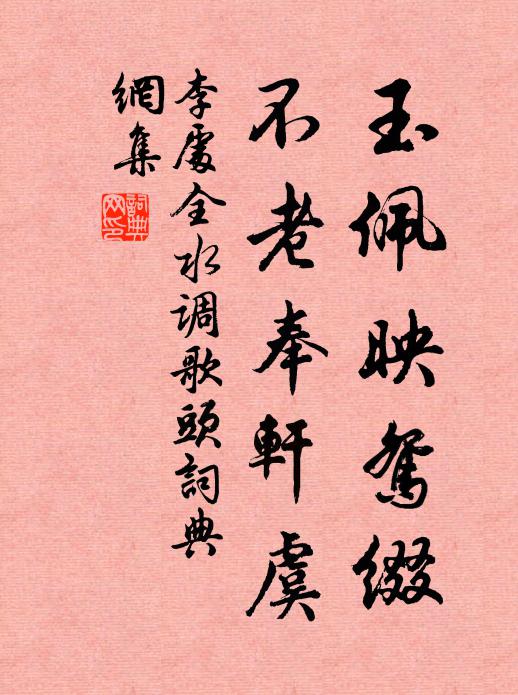 玉佩映鴛綴
不老奉軒虞
李處全水调歌頭詞典
網集
詞典网印